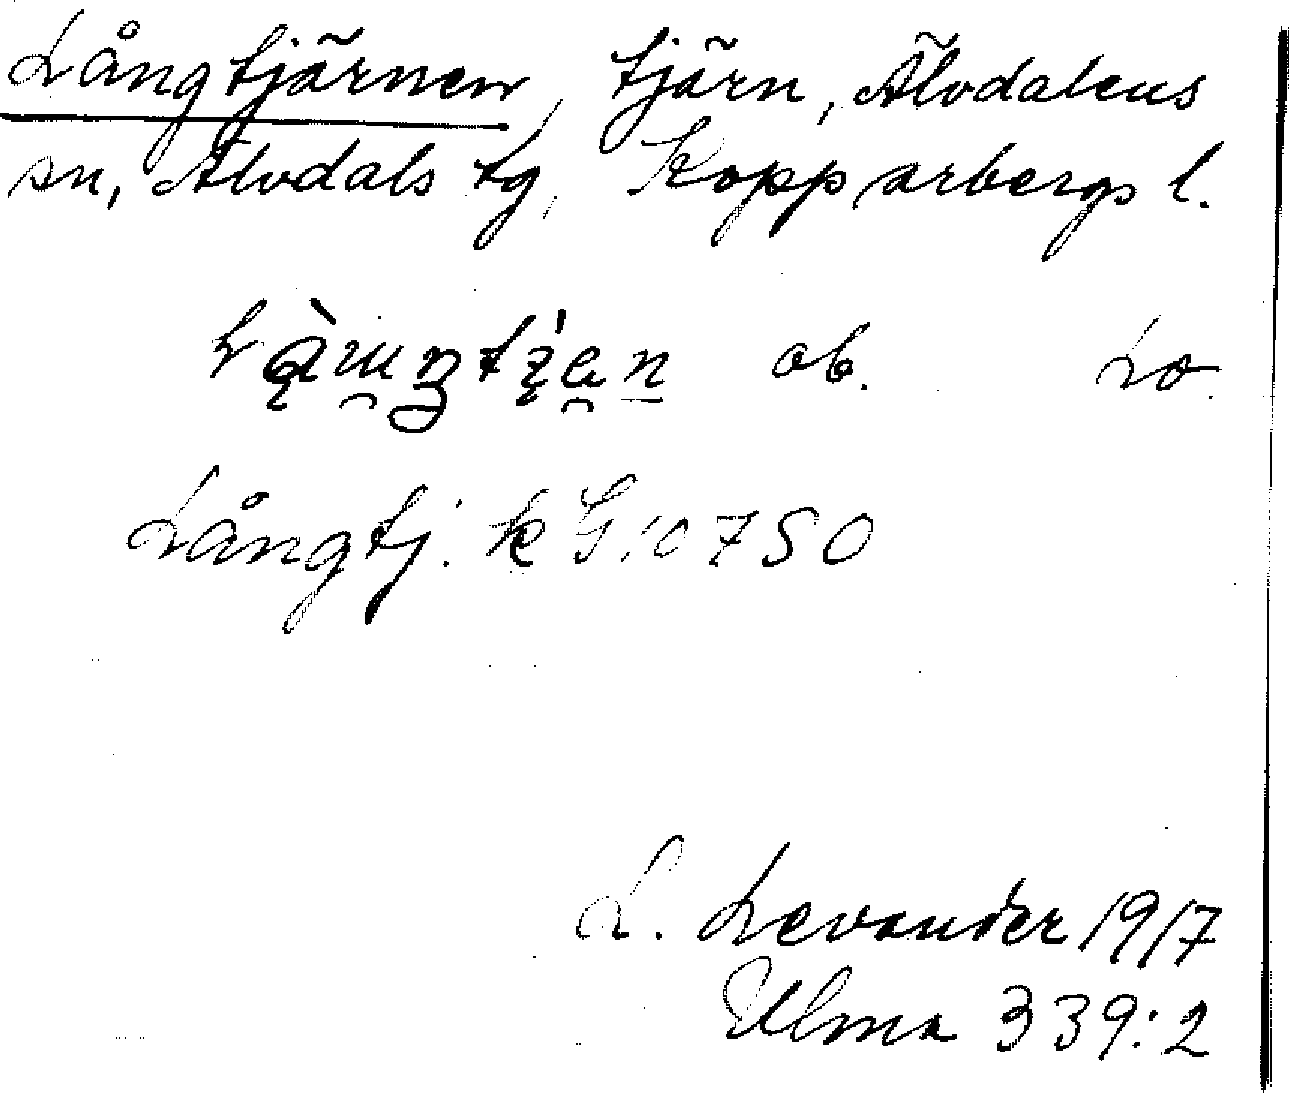 Långtjärnen, tjärn, Älvdalens
sn, Älvdals tg, Kopparbergs l.
ob. Lo.
Långtj. k G:10750
L. Levander 1917
Ulma 339:2